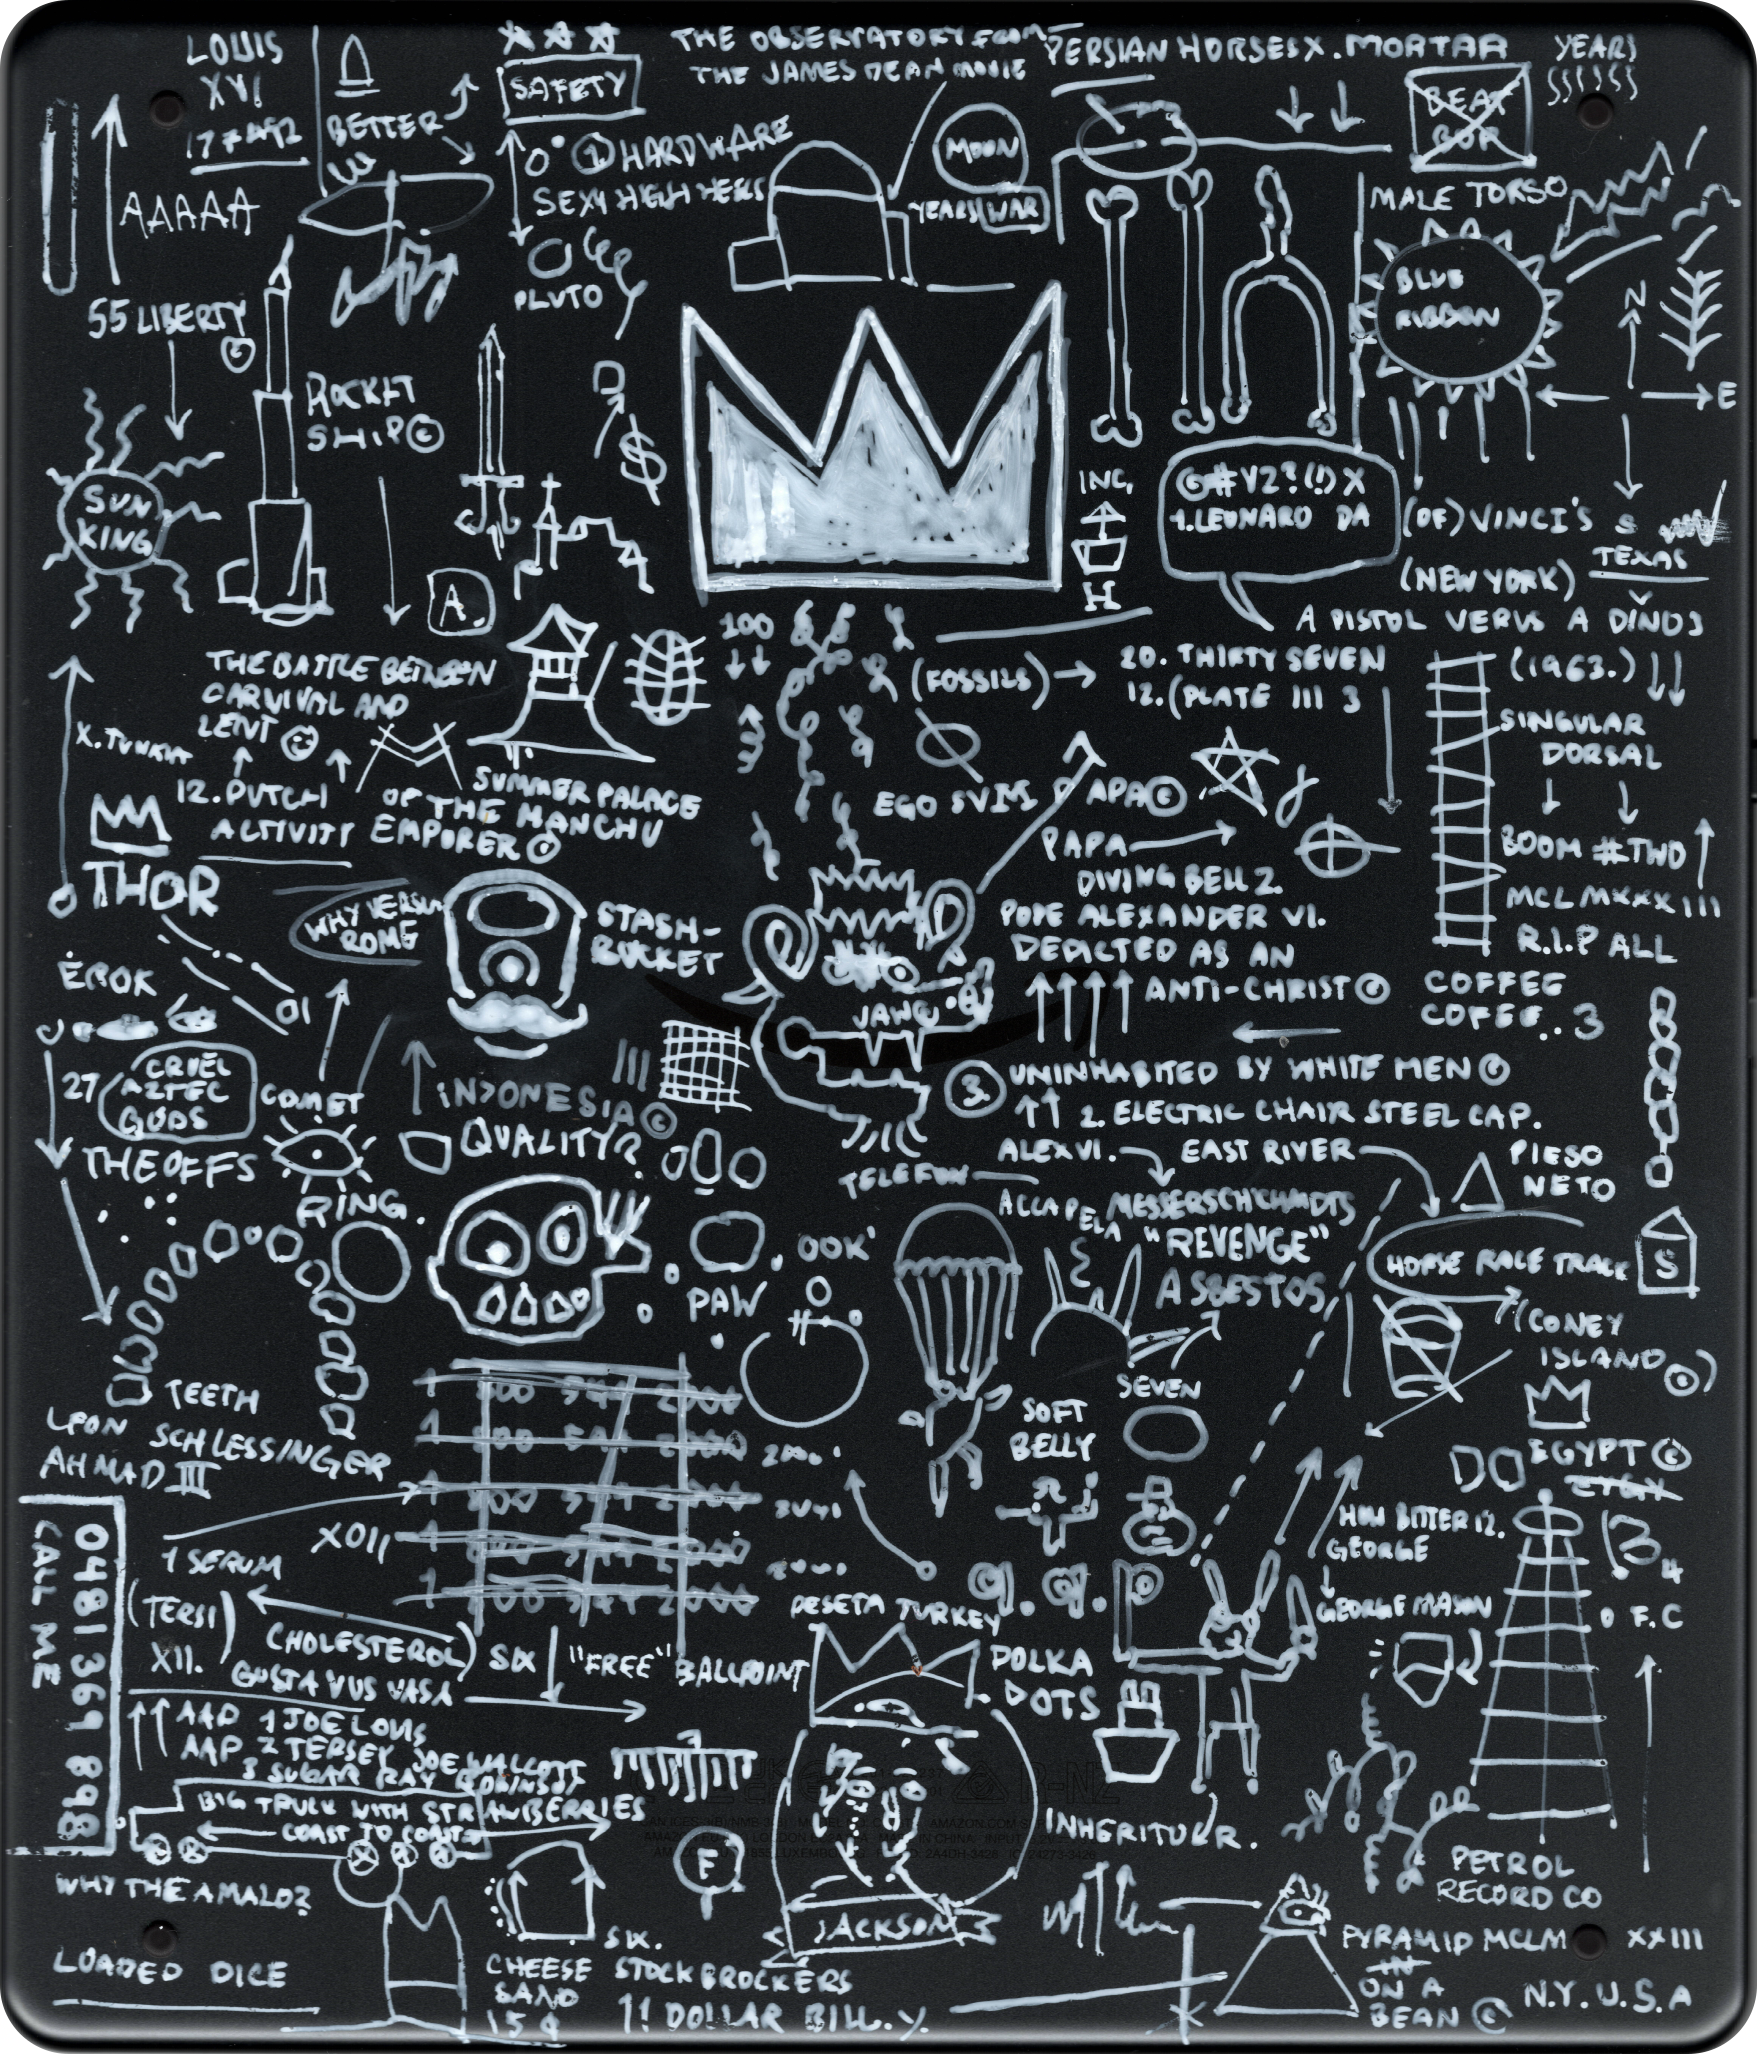 LOUIS
XVI
BETTER
SAFETY
THE OBSERVATORY FROM
THE JAMES DEAN MOVIE
PERSIAN HORSES X. MORTAR
YEARS
SSSSSS
BEAT
BOP
AAAAA
HARDWARE
SEXY HIGH HEELS
MOON
YEARS WAR
MALE TORSO
PLUTO
55 LIBERTY
BLUE
RIBBON
N
E
ROCKET
SHIP ©
$
SUN
KING
INC.
©#V2?(!) X
1. LEONARO DA
(OF) VINCI'S
S
TEXAS
(NEW YORK)
A
H
A PISTOL VERUS A DINOS
100
THE BATTLE BETWEEN
CARVIVAL AND
LENT
(FOSSILS)
20. THIRTY SEVEN
12. (PLATE III 3
(1963.)
SINGULAR
DORSAL
12. DUTCH
ACTIVITY
SUMMER PALACE
OF THE MANCHU
EMPORER ©
EGO SVM PAPA ©
PAPA
DIVING BELL 2.
BOOM #TWO
THOR
WHY VERSUS
ROME
STASH-
BUCKET
POPE ALEXANDER VI.
DEPICTED AS AN
ANTI-CHRIST ©
MCLMXXXIII
R.I.P ALL
EROK
01
JAWS
COFFEE
COFEE..3
27
CRUEL
AZTEC
GODS
COMET
INDONESIA ©
QUALITY
3.
UNINHABITED BY WHITE MEN ©
2. ELECTRIC CHAIR STEEL CAP.
THE OFFS
RING.
TELEFON
ALEX VI.
EAST RIVER
PIESO
NETO
ACCAPELA
MESSERSCHCHMIDTS
"REVENGE"
ASBESTOS
HORSE RACE TRACK
S
OOK'
PAW
(CONEY
ISLAND ©)
TEETH
SEVEN
SOFT
BELLY
LEON SCHLESSINGER
AHMAD III
EGYPT ©
XOII
1 SERUM
GEORGE
GEORGE MASON
F.C
0481369 898
CALL ME
(TERSI)
XII.
CHOLESTEROL)
SIX
"FREE"
BALLPOINT
PESETA TURKEY
POLKA
DOTS
GUSTAVUS VASA
AAP 1 JOE LOUIS
AAP 2 JERSEY JOE WALCOTT
3 SUGAR RAY ROBINSON
BIG TRUCK WITH STRAWBERRIES
COAST TO COAST
F
INHERITUER.
PETROL
RECORD CO
WHY THE AMALD?
JACKSON
LOADED DICE
CHEESE
SAND
15¢
SIX.
STOCKBROCKERS
1! DOLLAR BILL. Y.
PYRAMID MCLM XXIII
IN
ON A
BEAN ©
N.Y. U.S.A